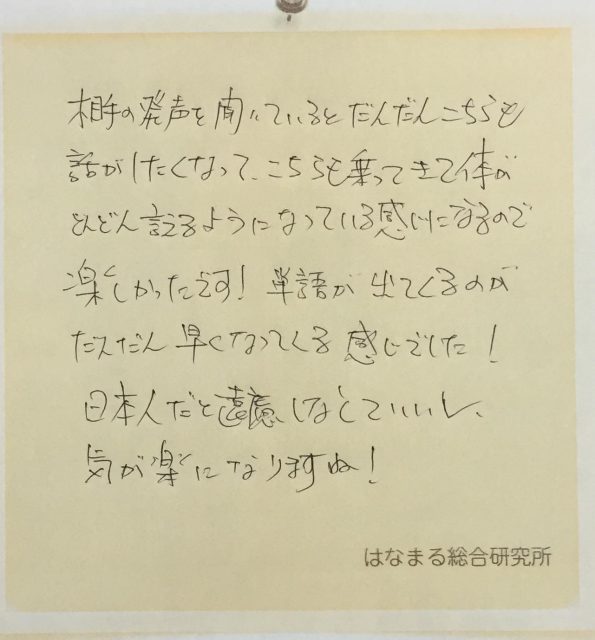 相手の発声を聞いているとだんだんこちらも
話がしたくなって、こちらも乗ってきて体が
どんどん言えるようになっている感じになるので
楽しかったです！単語が出てくるのが
だんだん早くなってくる感じでした！
日本人だと遠慮しなくていいし、
気が楽になりますね！
はなまる総合研究所